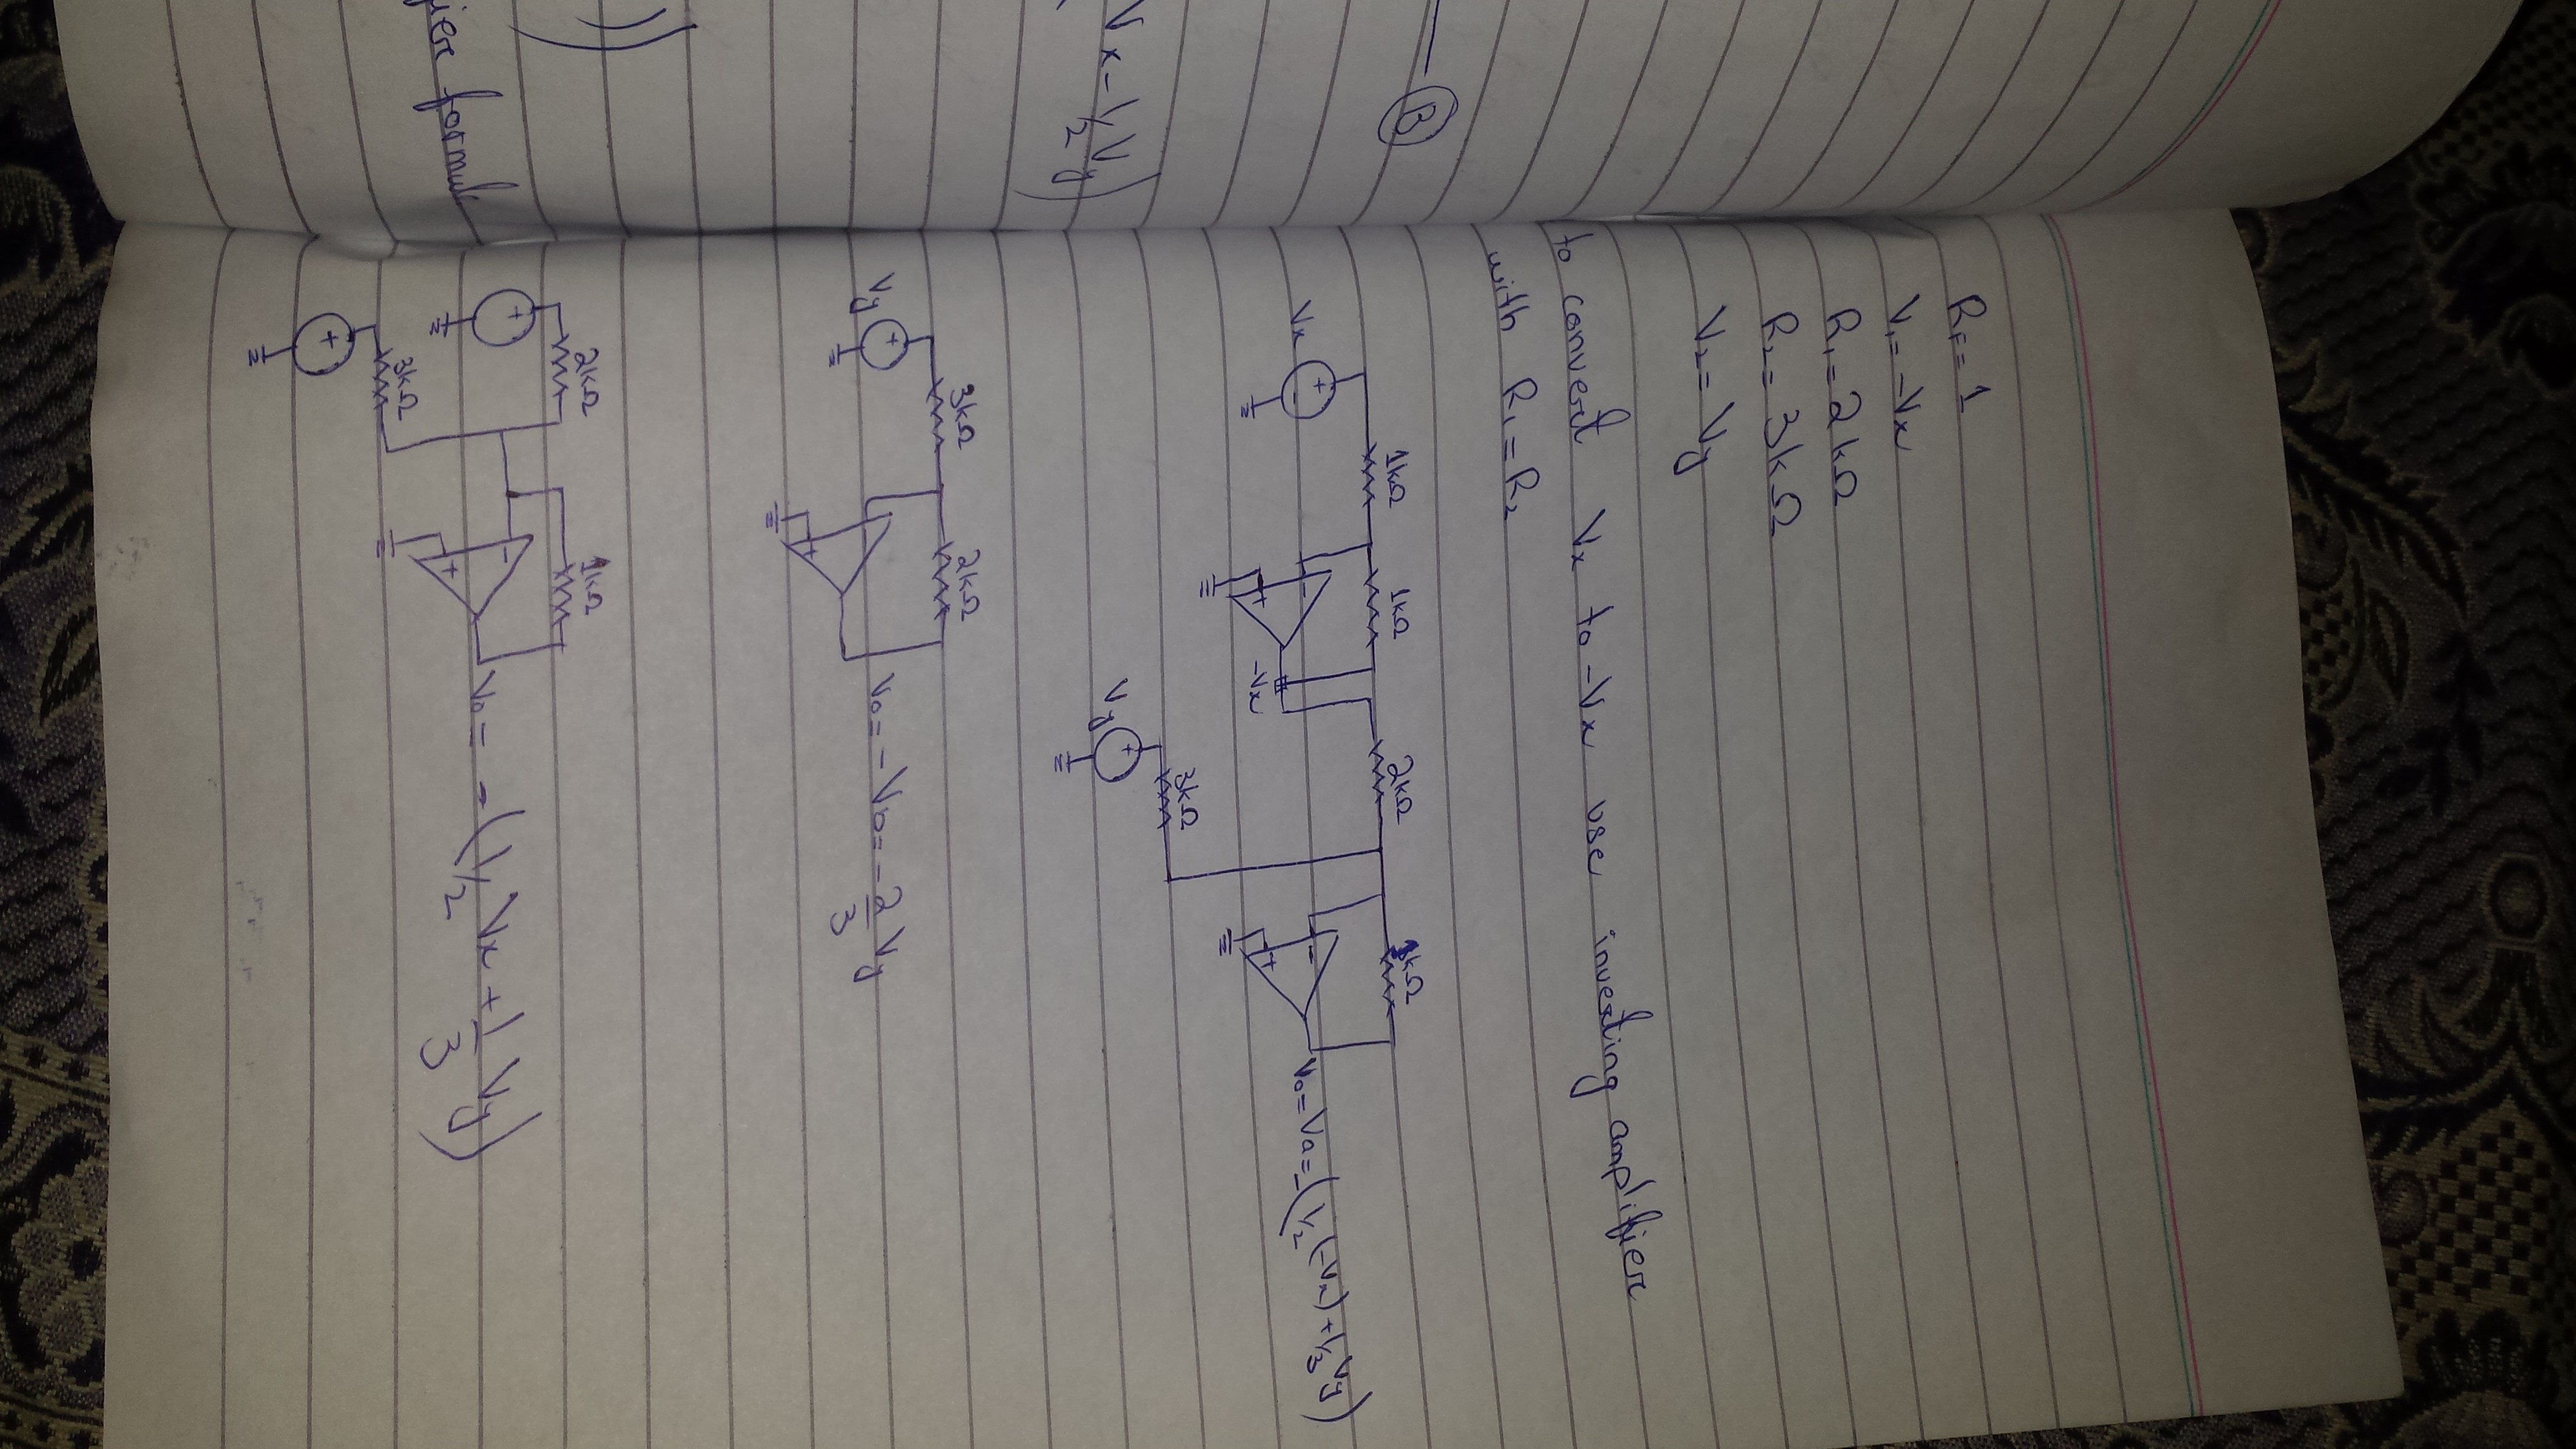 B
Vx - 1/2 Vy)
))
ier formul
RF = 1
V1 = -Vx
R1 = 2kΩ
R2 = 3kΩ
V2 = Vy
to convert Vx to -Vx use inverting amplifier
with R1 = R2
1kΩ 1kΩ 2kΩ 1kΩ
Vx + - - + - +
-Vx
Vo = Va = -(1/2(-Vx) + 1/3 Vy)
Vy + 3kΩ
3kΩ 2kΩ
Vy + - +
Vo = -Vb = -2/3 Vy
2kΩ 1kΩ
+ - +
Vo = -(1/2 Vx + 1/3 Vy)
3kΩ
+